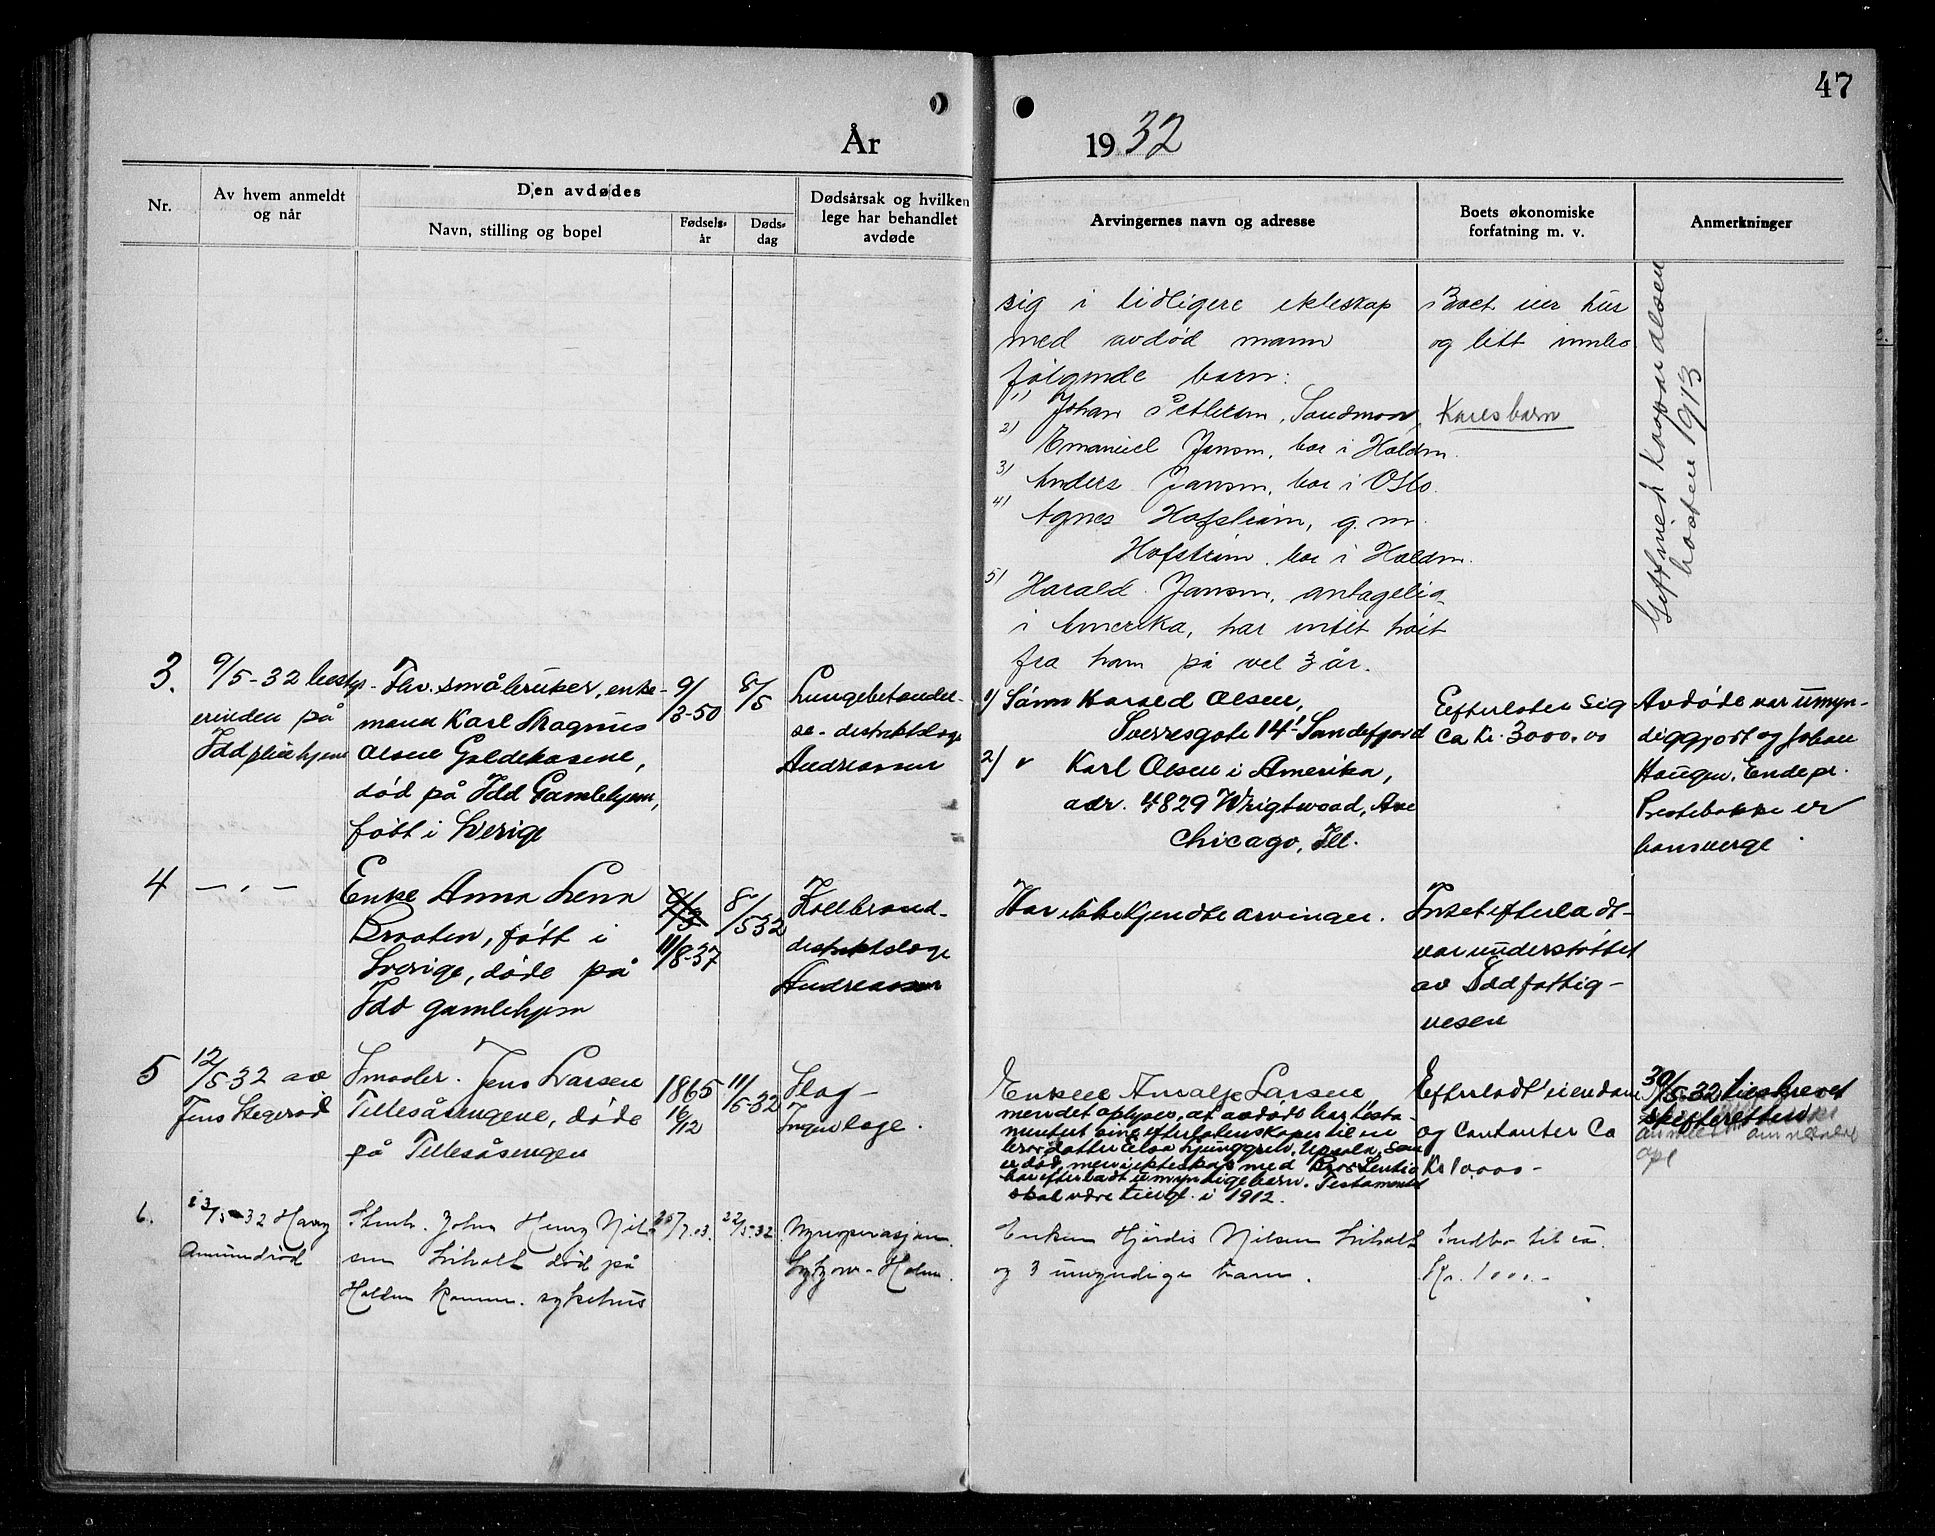 47
År 1932
Nr.
Av hvem anmeldt
og når
Den avdødes
Navn, stilling og bopel
Fødsels-
år
Døds-
dag
Dødsårsak og hvilken
lege har behandlet
avdøde
Arvingernes navn og adresse
Boets økonomiske
forfatning m. v.
Anmerkninger
sig i tidligere ekteskap
med avdød mann
følgende barn:
1) Johan
2) Emanuel Jansen, bor i Halden.
3) Anders Jansen, bor i Oslo.
4) Agnes Hofstrøm, g. m.
Hofstrøm, bor i Halden.
5) Harald Jansen, antagelig
i Amerika, har intet hørt
fra ham på vel 3 år.
Boet eier hus
og litt innbo
høsten 1913
3.
9/5-32
på
Fhv. småbruker, enke-
mann Karl Magnus
Olsen Goldekasene,
død på Idd Gamlehjem,
født i Sverige
9/
3-50
8/5
Lungebetændel-
se - distriktslæge
Andreassen
1) Sønn Harald Olsen,
Sverresgate 14 Sandefjord
2) " Karl Olsen i Amerika,
adr. 4829 Wrigtwood, Ave
Chicago, Ill.
Efterlater sig
Ca Kr. 3000.00
Avdøde var umyn-
diggjort og Johan
Haugen, Ende pr.
Prestebakke er
hans verge.
4
— „ —
Enke Anna Lena
Braaten, født i
Sverige, døde på
Idd gamlehjem
11/8-37
8/5 32
Koldbrand-
distriktslæge
Andreassen
Har ikke kjendte arvinger.
Intet efterladt -
var understøttet
av Idd fattig-
vesen
5
12/5-32 av
Jens Stegerød
Smaabr. Jens Larsen
Tillesåsengene, døde
på Tillesåsengen
1865
16/12
11/5-32
Slag -
Ingen læge.
Enken Amalje Larsen,
men det oplyses, at avdøde har testa-
mentert sine efterlatenskaper til en
brordatter Elsa Ljunggren, Upsala, som
er død, men i ekteskap med
har efterladt umyndige barn. Testamentet
skal være tingl. i 1912.
Efterladt eiendom
og Contanter Ca
Kr 10.000 -
30/5-32 tilskrevet
skifteretten
6.
23/5-32 Harry
Amundrød
John Henry Nil-
sen Liholt død på
Halden komm. sykehus
25/7.03.
22/5-32
Nyreoperasjon.
Enken Hjørdis Nilsen Liholt
og 3 umyndige barn.
Indbo til ca.
Kr. 1000.-